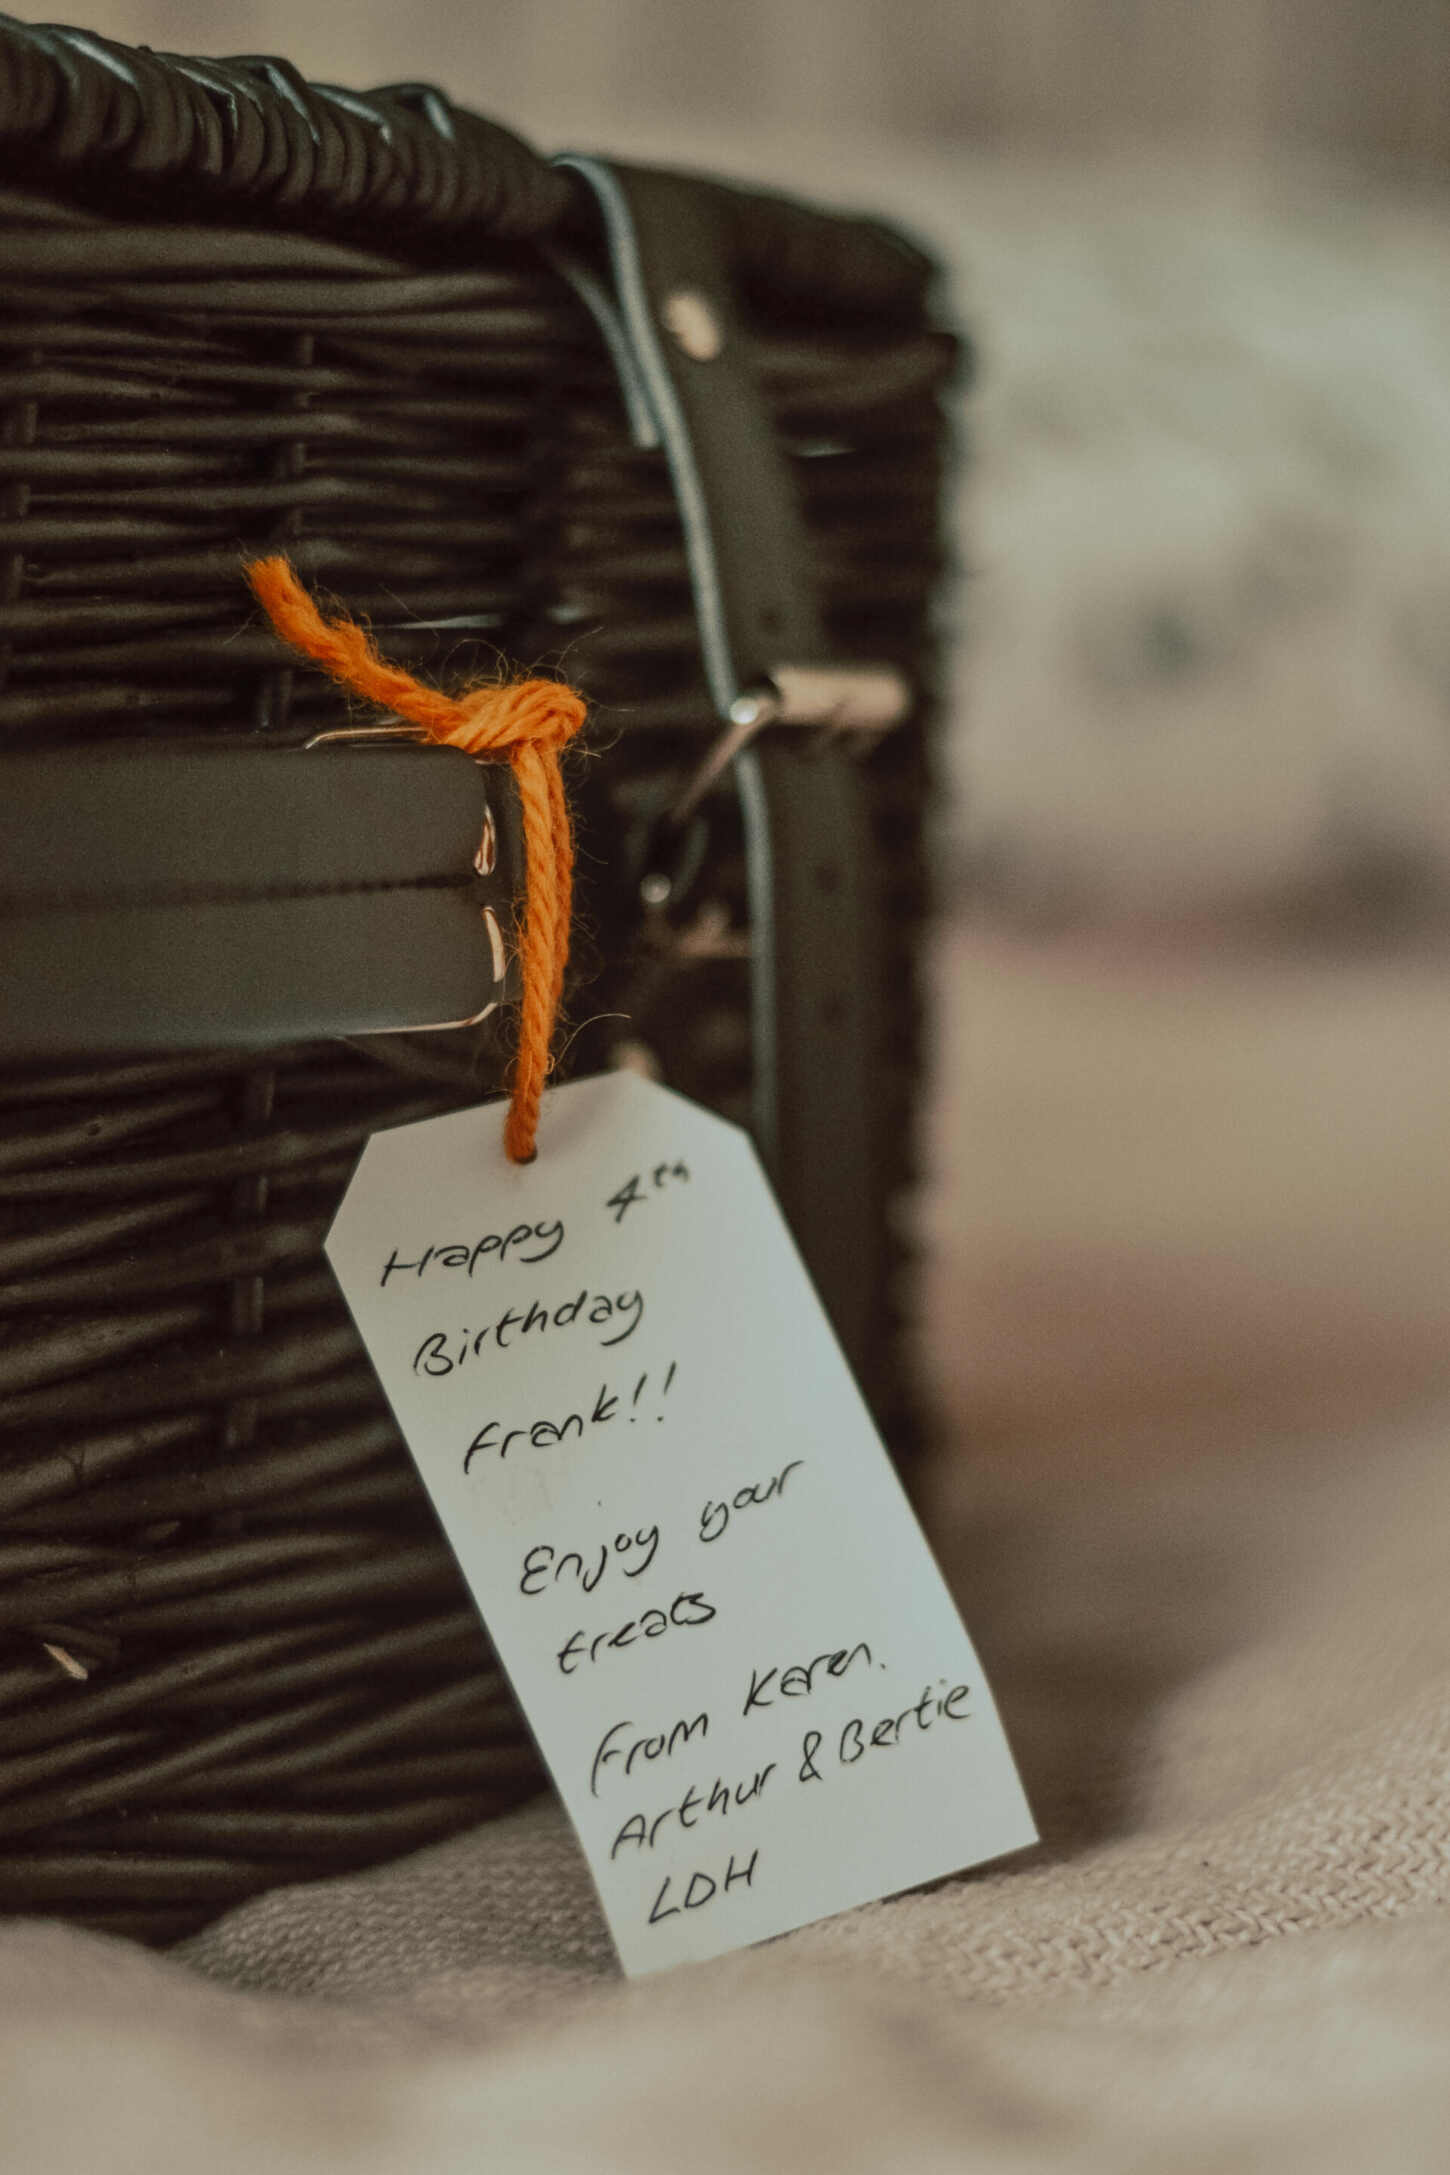 Happy 4th
Birthday
Frank!!
Enjoy your
treats
From Karen.
Arthur & Bertie
LDH